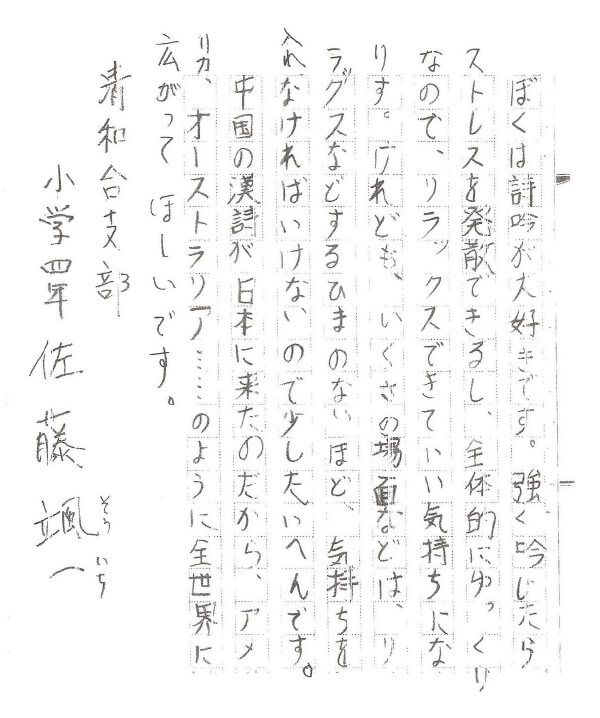 ぼくは詩吟が大好きです。強く吟じたら
ストレスを発散できるし、全体的にゆっくり
なので、リラックスできていい気持ちにな
ります。けれども、いくさの場面などは、リ
ラグスなどするひまのないほど、気持ちを
入れなければいけないので少したいへんです。
中国の漢詩が日本に来たのだから、アメ
リカ、オーストラリア……のように全世界に
広がってほしいです。
青和台支部
小学四年 佐藤颯一
そういち